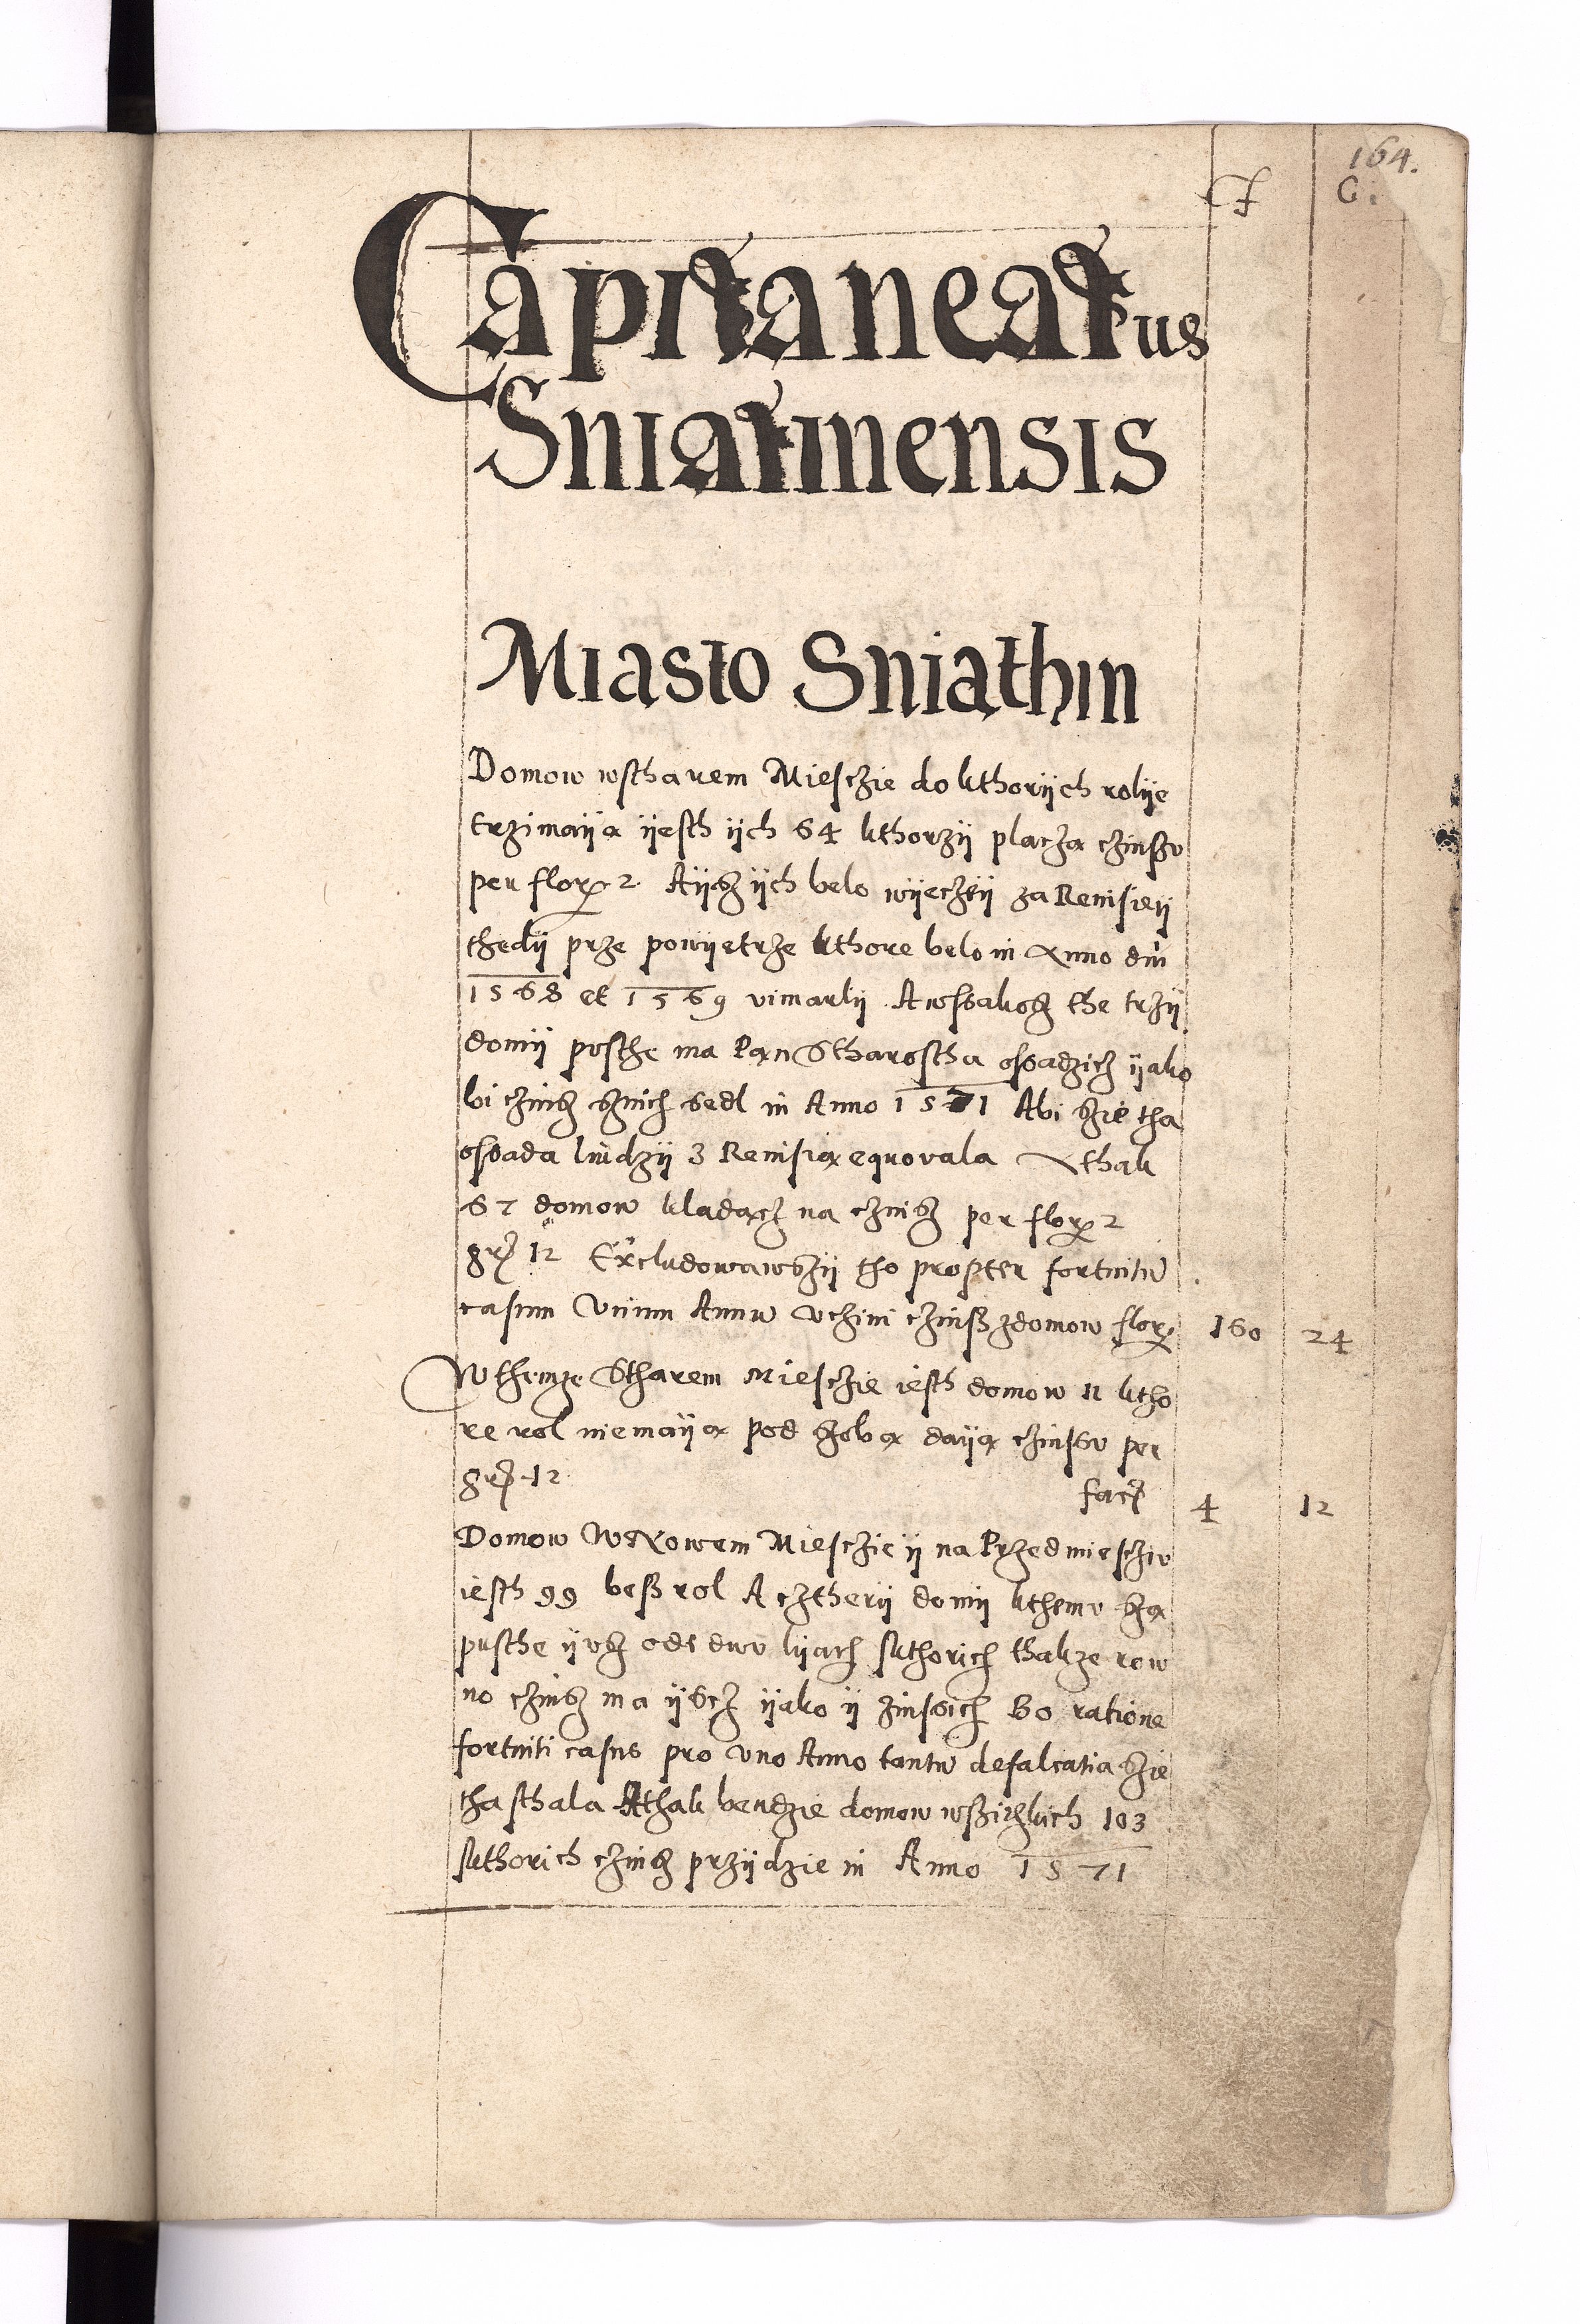 164.
F G.
Capitaneatus
Sniatinensis
Miasto Sniathin
Domow wstharem Miesczie do kthorÿch rolÿe
trzimaÿą ÿesth ÿch 64 kthorzÿ placzą czinßu
per flor 2 Aÿsz ÿch belo wÿeczÿ za Reuisieÿ
thedÿ prze powÿetrze kthore belo in Anno dni
1568 et 1569 vimarlÿ Awssakosz the trzÿ
domÿ pusthe ma Pan Stharostha ossadzicz ÿako
bi czinsz sznich szedl in Anno 1571 Abi szie tha
ossada ludzÿ 3 Reuisią equowala Athak
67 domow kladącz na czinsz per flor 2
gr 12 Excludowawszÿ tho propter fortuitu
casum Vnum Annu vchini czinß zdomow flor 160 24
Wthemze Stharem Miesczie iesth domow 11 ktho
re rol niemaÿą pod szobą daÿą czinssu per
gr 12 facz 4 12
Domow WNowem Miesczie ÿ na Przedmiesczu
iesth 99 beß rol A cztherÿ domÿ kthemu szą
pusthe ÿusz ode dwu lÿach skthorich thakze row
no czinsz ma ÿscz ÿako ÿ zinssich Bo ratione
fortuiti casus pro vno Anno tantu defalcatia szie
tha sthala Athak bendzie domow wßiczkich 103
skthorich czinsz przÿdzie in Anno 1571